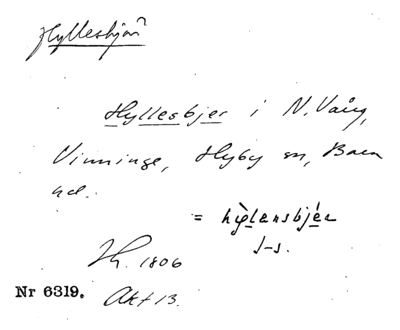 Hyllesbjär
Hyllesbjer i N. Vång,
Vinninge, Hyby sn, Bara
hd.
= hỳlænsbjéra
J-s.
Th. 1806
Nr 6319. Akt 13.